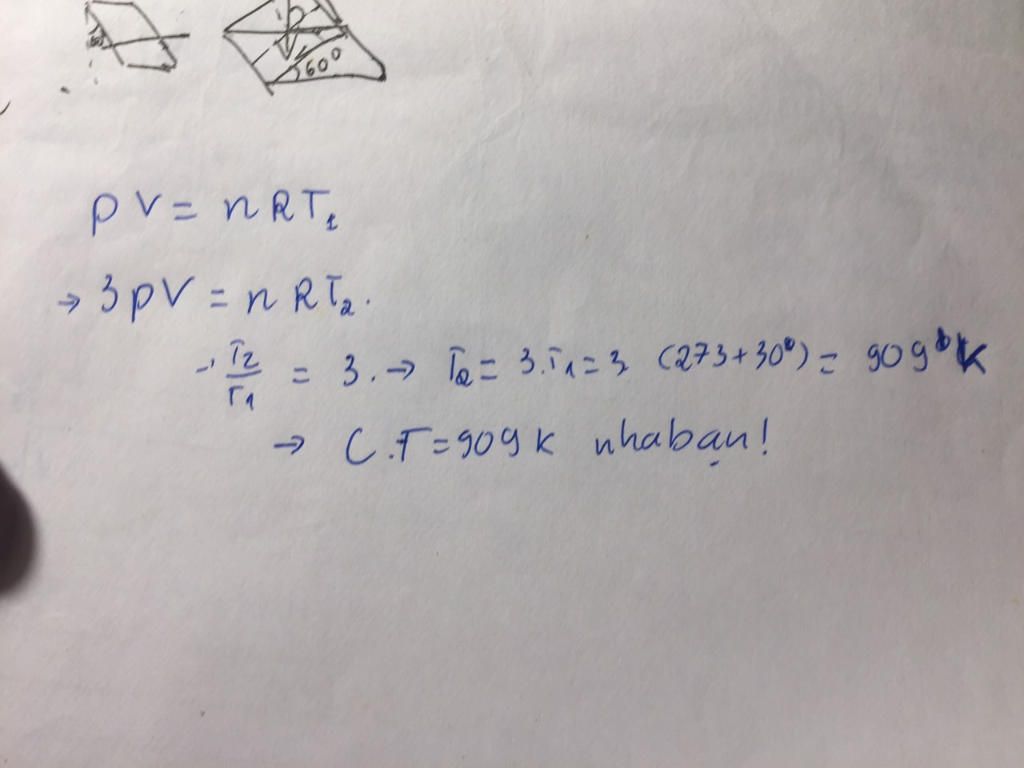 60°
pV = nRT₁
→ 3pV = nRT₂.
→ T₂/T₁ = 3. → T₂ = 3.T₁ = 3 (273+30°) = 909°K
→ C.T = 909K nhabạn!